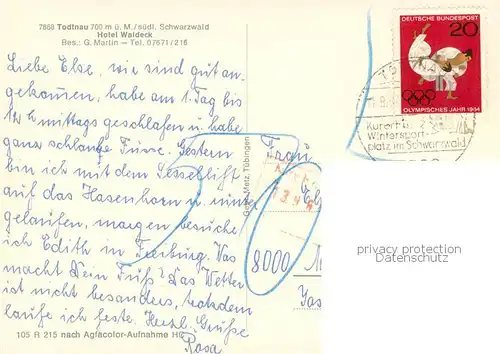 7868 Todtnau 700 m ü. M./südl. Schwarzwald
Hotel Waldeck
Bes.: G. Martin — Tel. 07671/216
Liebe Else, wie sind gut an-
gekommen, habe am 1. Tag bis
1/2 mittags geschlafen u. habe
ganz schlanke Füsse. Gestern
bin ich mit dem Sessellift
auf das Hasenhorn u. unter
gelaufen, morgen besuche
ich Edith in Freiburg. Was
macht Dein Fuß? Das Wetter
ist nicht besonders, trotzdem
laufe ich feste. Herzl. Grüße
Rosa
105 R 215 nach Agfacolor-Aufnahme
Gebr. Metz, Tübingen
Frau
8000
DEUTSCHE BUNDESPOST
20
OLYMPISCHES JAHR 1964
Kurort u.
Wintersport-
platz im Schwarzwald
privacy protection
Datenschutz